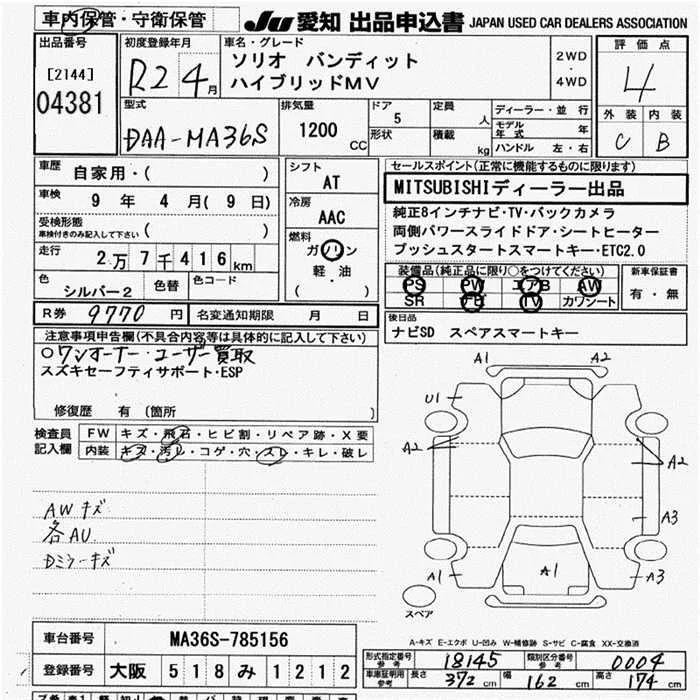 車内保管・守衛保管
JU 愛知 出品申込書 JAPAN USED CAR DEALERS ASSOCIATION
出品番号
[2144]
04381
初度登録年月
R2年4月
車名・グレード
ソリオ バンディット
ハイブリッドMV
2WD
・
4WD
評価点
4
外装 内装
C B
型式
DAA-MA36S
排気量
1200 CC
ドア 5
形状
定員 人
積載 kg
ディーラー・並行
モデル年式 年
ハンドル 左・右
車歴 自家用・( )
車検 9 年 4 月( 9 日)
受検形態
車検付きのみ記入して下さい ( )
走行 2万7千416km
色 シルバー2 色替 色コード
シフト
AT
冷房
AAC
燃料
ガソリン
軽・油
( )
セールスポイント(正常に機能するものに限ります)
MITSUBISHIディーラー出品
純正8インチナビ・TV・バックカメラ
両側パワースライドドア・シートヒーター
プッシュスタートスマートキー・ETC2.0
装備品(純正品に限り○をつけてください)
PS PW エアB AW
SR ナビ TV カワシート
新車保証書
有・無
R券 9770 円 名変通知期限 月 日
後日品
ナビSD スペアスマートキー
注意事項申告欄(不具合内容等は具体的に記入して下さい)
○ワンオーナー・ユーザー買取
スズキセーフティサポート・ESP
修復歴 有 (箇所 )
検査員記入欄
FW キズ・飛石・ヒビ割・リペア跡・X要
内装 キズ・汚レ・コゲ・穴・スレ・キレ・破レ
AWキズ
各AU
Dミラーキズ
A1 A2
U1
A2 A2
A3
A1 A1 A3
スペア
A-キズ E-エクボ U-凹み W-補修跡 S-サビ C-腐食 XX-交換済
車台番号 MA36S-785156
登録番号 大阪 518み1212
形式指定番号 参考 18145 類別区分番号 参考 0004
車庫証明用 参考 長さ 372 cm 幅 162 cm 高さ 174 cm